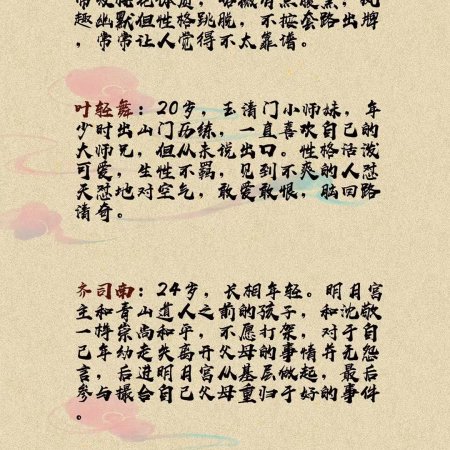 趣幽默但性格跳脱，不按套路出牌
，常常让人觉得不太靠谱。
叶轻舞：20岁，玉清门小师妹，年
少时出山门历练，一直喜欢自己的
大师兄，但从未说出口。性格活泼
可爱，生性不羁，见到不爽的人怼
天怼地对空气，敢爱敢恨，脑回路
清奇。
齐司南：24岁，长相年轻。明月宫
主和青山道人之前的孩子，和沈敬
一样崇尚和平，不愿打架，对于自
己年幼走失离开父母的事情并无怨
言，后进明月宫从基层做起，最后
参与撮合自己父母重归于好的事件
。